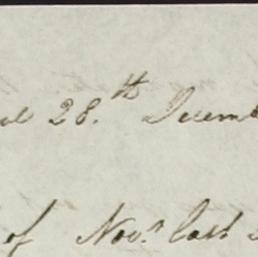 28.th Decemb
of Nov.r last